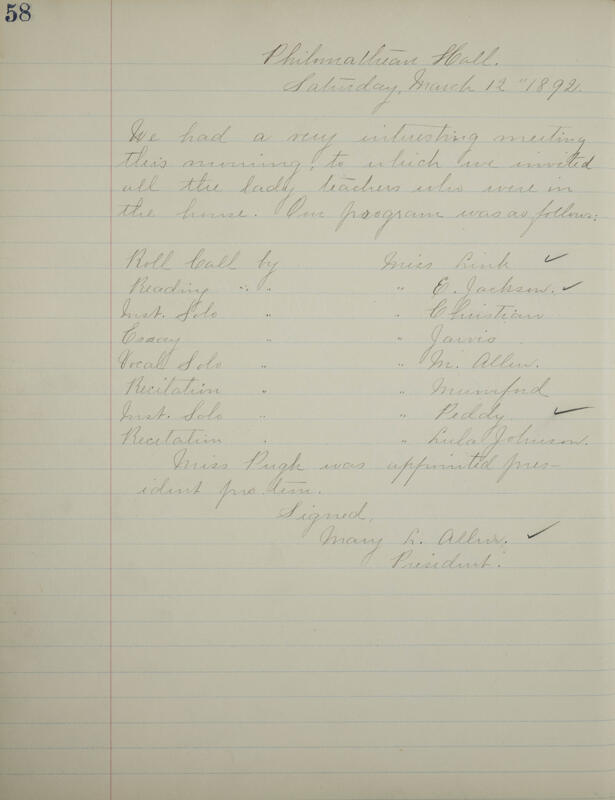 58
Philomathean Hall.
Saturday, March 12" 1892.
We had a very interesting meeting
this morning; to which we invited
all the lady teachers who were in
the house. Our program was as follows:
Roll Call by Miss Link ✓
Reading " " " E. Jackson. ✓
Inst. Solo " " Christian
Essay " " Jarvis
Vocal Solo " " M. Allen.
Recitation " " Mumford
Inst. Solo " " Peddy ✓
Recitation " " Lula Johnson.
Miss Pugh was appointed pres-
ident pro. tem.
Signed,
Mary L. Allen. ✓
President.